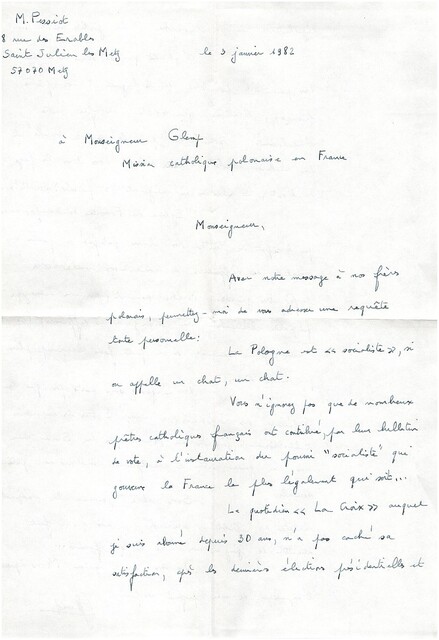 M. Pessiot
8 rue des Erables
Saint Julien les Metz
57070 Metz
le 3 janvier 1982
à Monseigneur Glemp
Mission catholique polonaise en France
Monseigneur,
Avec notre message à nos frères
polonais, permettez-moi de vous adresser une requête
toute personnelle:
La Pologne est « socialiste », si
on appelle un chat, un chat.
Vous n'ignorez pas que de nombreux
prêtres catholiques français ont contribué, par leur bulletin
de vote, à l'instauration du pouvoir "socialiste" qui
gouverne la France le plus légalement qui soit...
Le quotidien « La Croix » auquel
je suis abonné depuis 30 ans, n'a pas caché sa
satisfaction, après les dernières élection présidentielles et